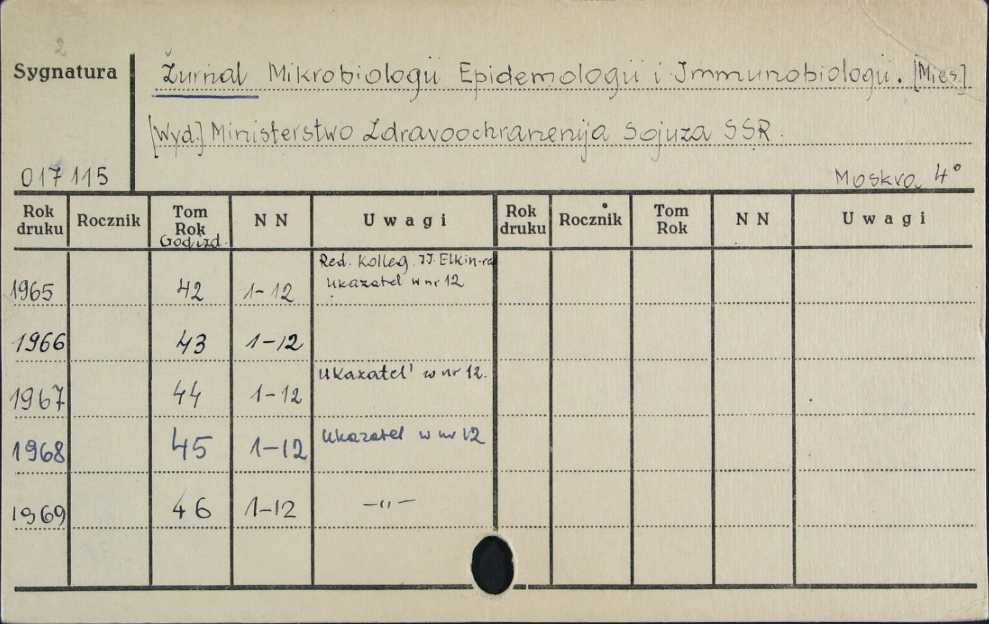 2
Sygnatura Žurnal Mikrobiologii Epidemologii i Immunobiologii. [Mies.]
[Wyd.] Ministerstwo Zdravoochranenija Sojuza SSR.
017 115 Moskva 4°
Rok druku Rocznik Tom Rok God izd. N N Uwagi Rok druku Rocznik Tom Rok N N Uwagi
Red. Kolleg. I.I. Elkin-red
1965 42 1-12 Ukazatel w nr 12
1966 43 1-12
1967 44 1-12 Ukazatel' w nr 12.
1968 45 1-12 Ukazatel w nr 12
1969 46 1-12 -"-